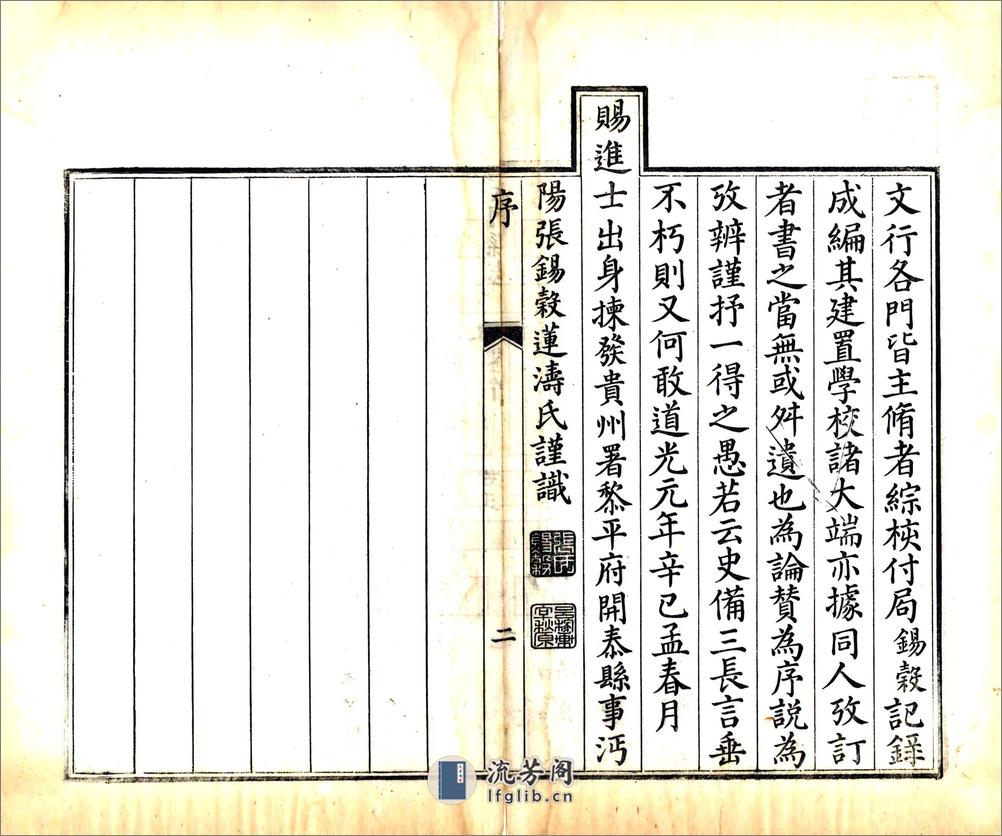 文行各門皆主脩者綜核付局錫穀記錄
成編其建置學校諸大端亦據同人攷訂
者書之當無或舛遺也為論贊為序說為
攷辨謹抒一得之愚若云史備三長言垂
不朽則又何敢道光元年辛巳孟春月
賜進士出身揀發貴州署黎平府開泰縣事沔
陽張錫穀蓮濤氏謹識
序
二
流芳阁
lfglib.cn